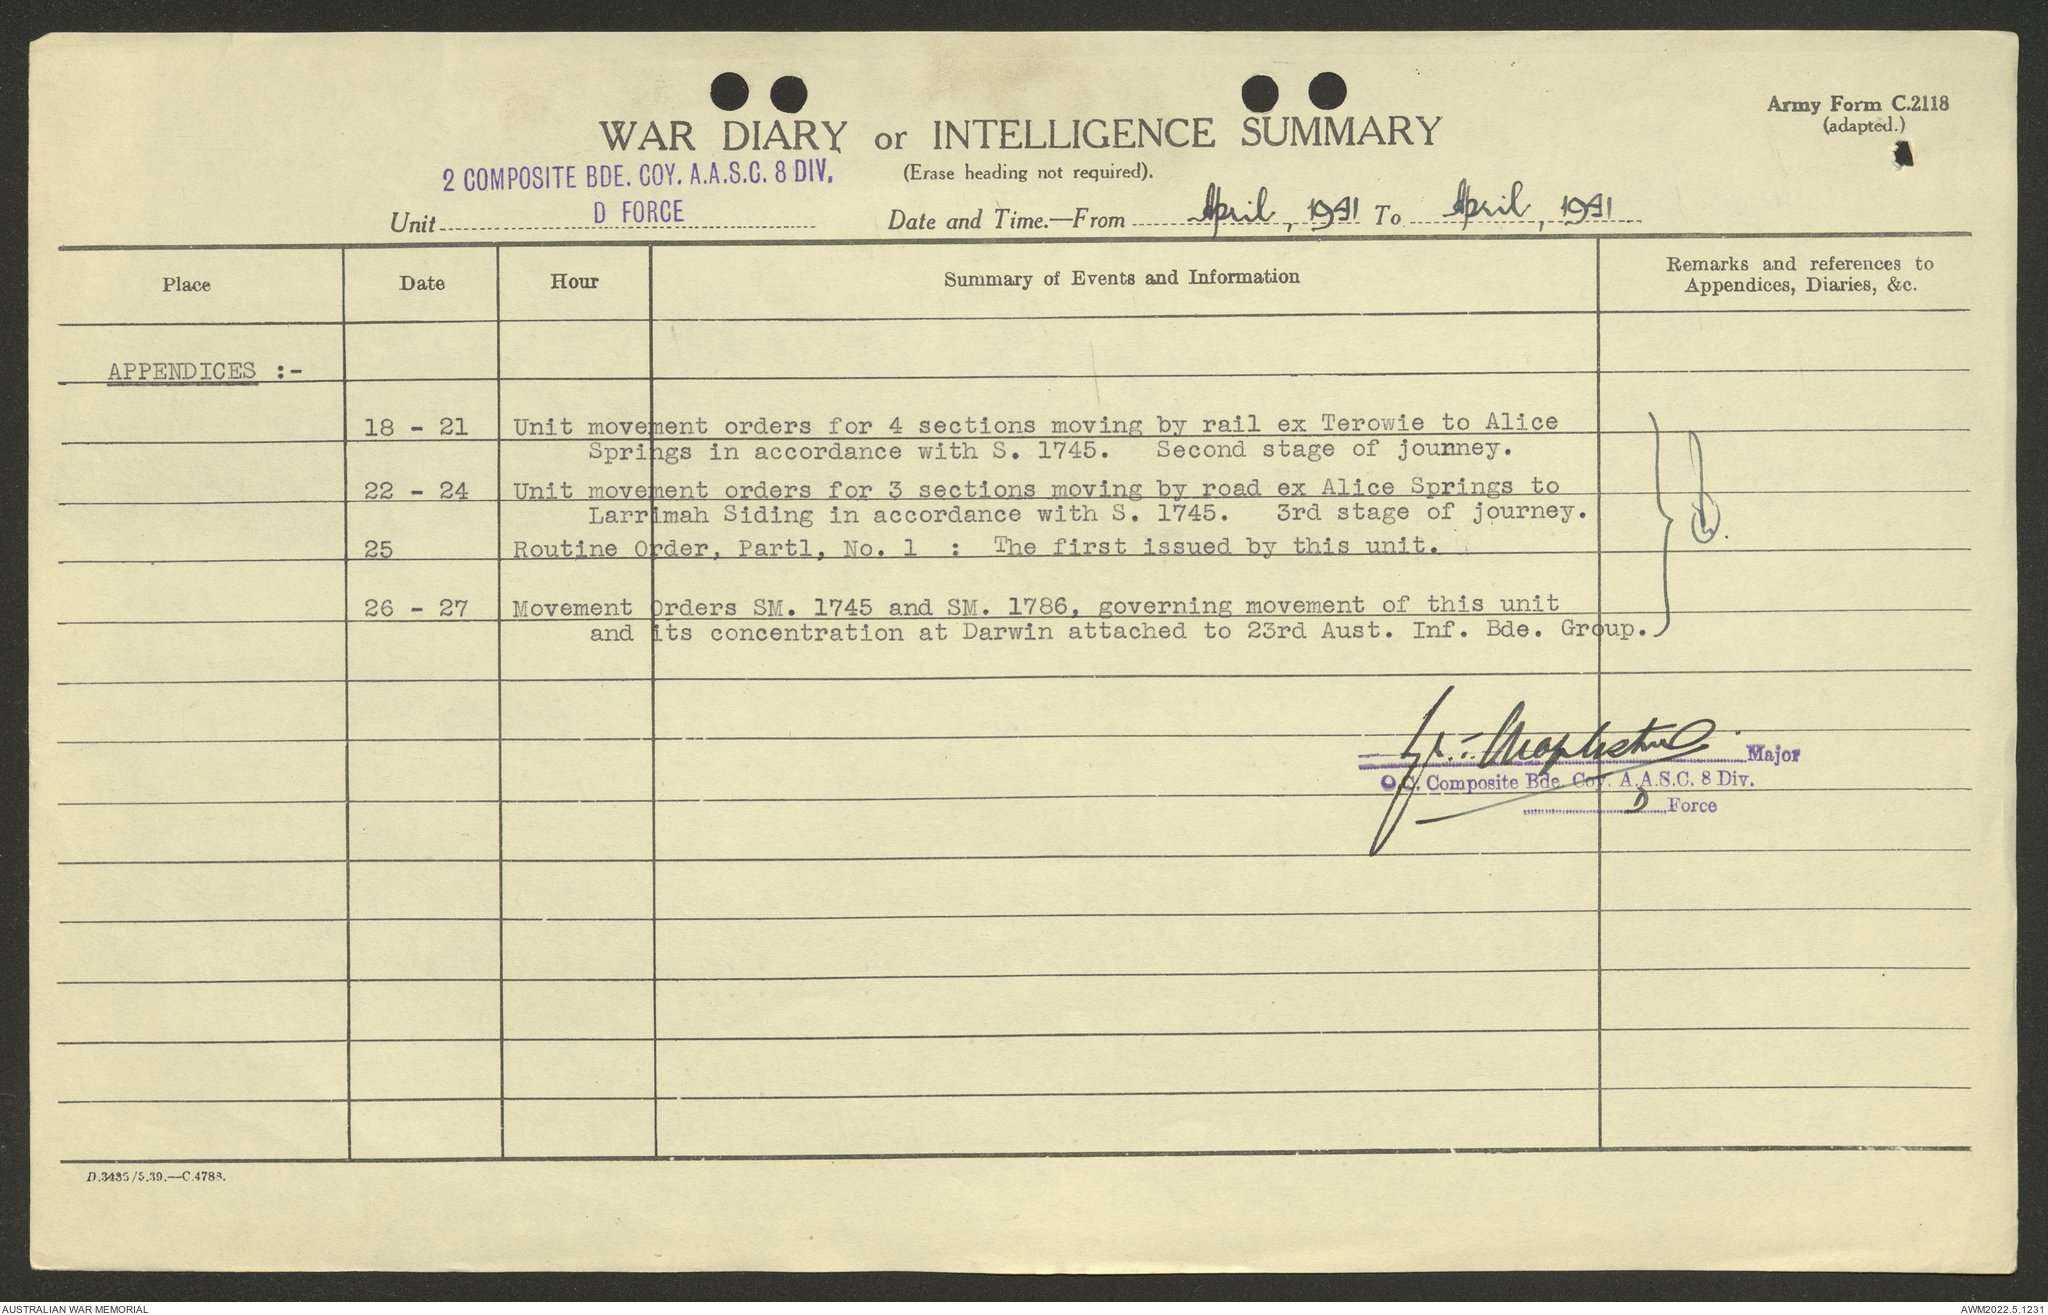 Army Form C.2118
(adapted.)
WAR DIARY or INTELLIGENCE SUMMARY
(Erase heading not required).
2 COMPOSITE BDE. COY. A.A.S.C. 8 DIV.
Unit D FORCE
Date and Time.—From April, 1941 To April, 1941
Place Date Hour Summary of Events and Information Remarks and references to
Appendices, Diaries, &c.
APPENDICES :-
18 - 21 Unit movement orders for 4 sections moving by rail ex Terowie to Alice
Springs in accordance with S. 1745. Second stage of journey.
22 - 24 Unit movement orders for 3 sections moving by road ex Alice Springs to
Larrimah Siding in accordance with S. 1745. 3rd stage of journey.
25 Routine Order, Part1, No. 1 : The first issued by this unit.
26 - 27 Movement Orders SM. 1745 and SM. 1786, governing movement of this unit
and its concentration at Darwin attached to 23rd Aust. Inf. Bde. Group.
Major
O.C. Composite Bde. Coy. A.A.S.C. 8 Div.
D Force
D.3435/5.39.—C.4788.
AUSTRALIAN WAR MEMORIAL
AWM2022.5.1231